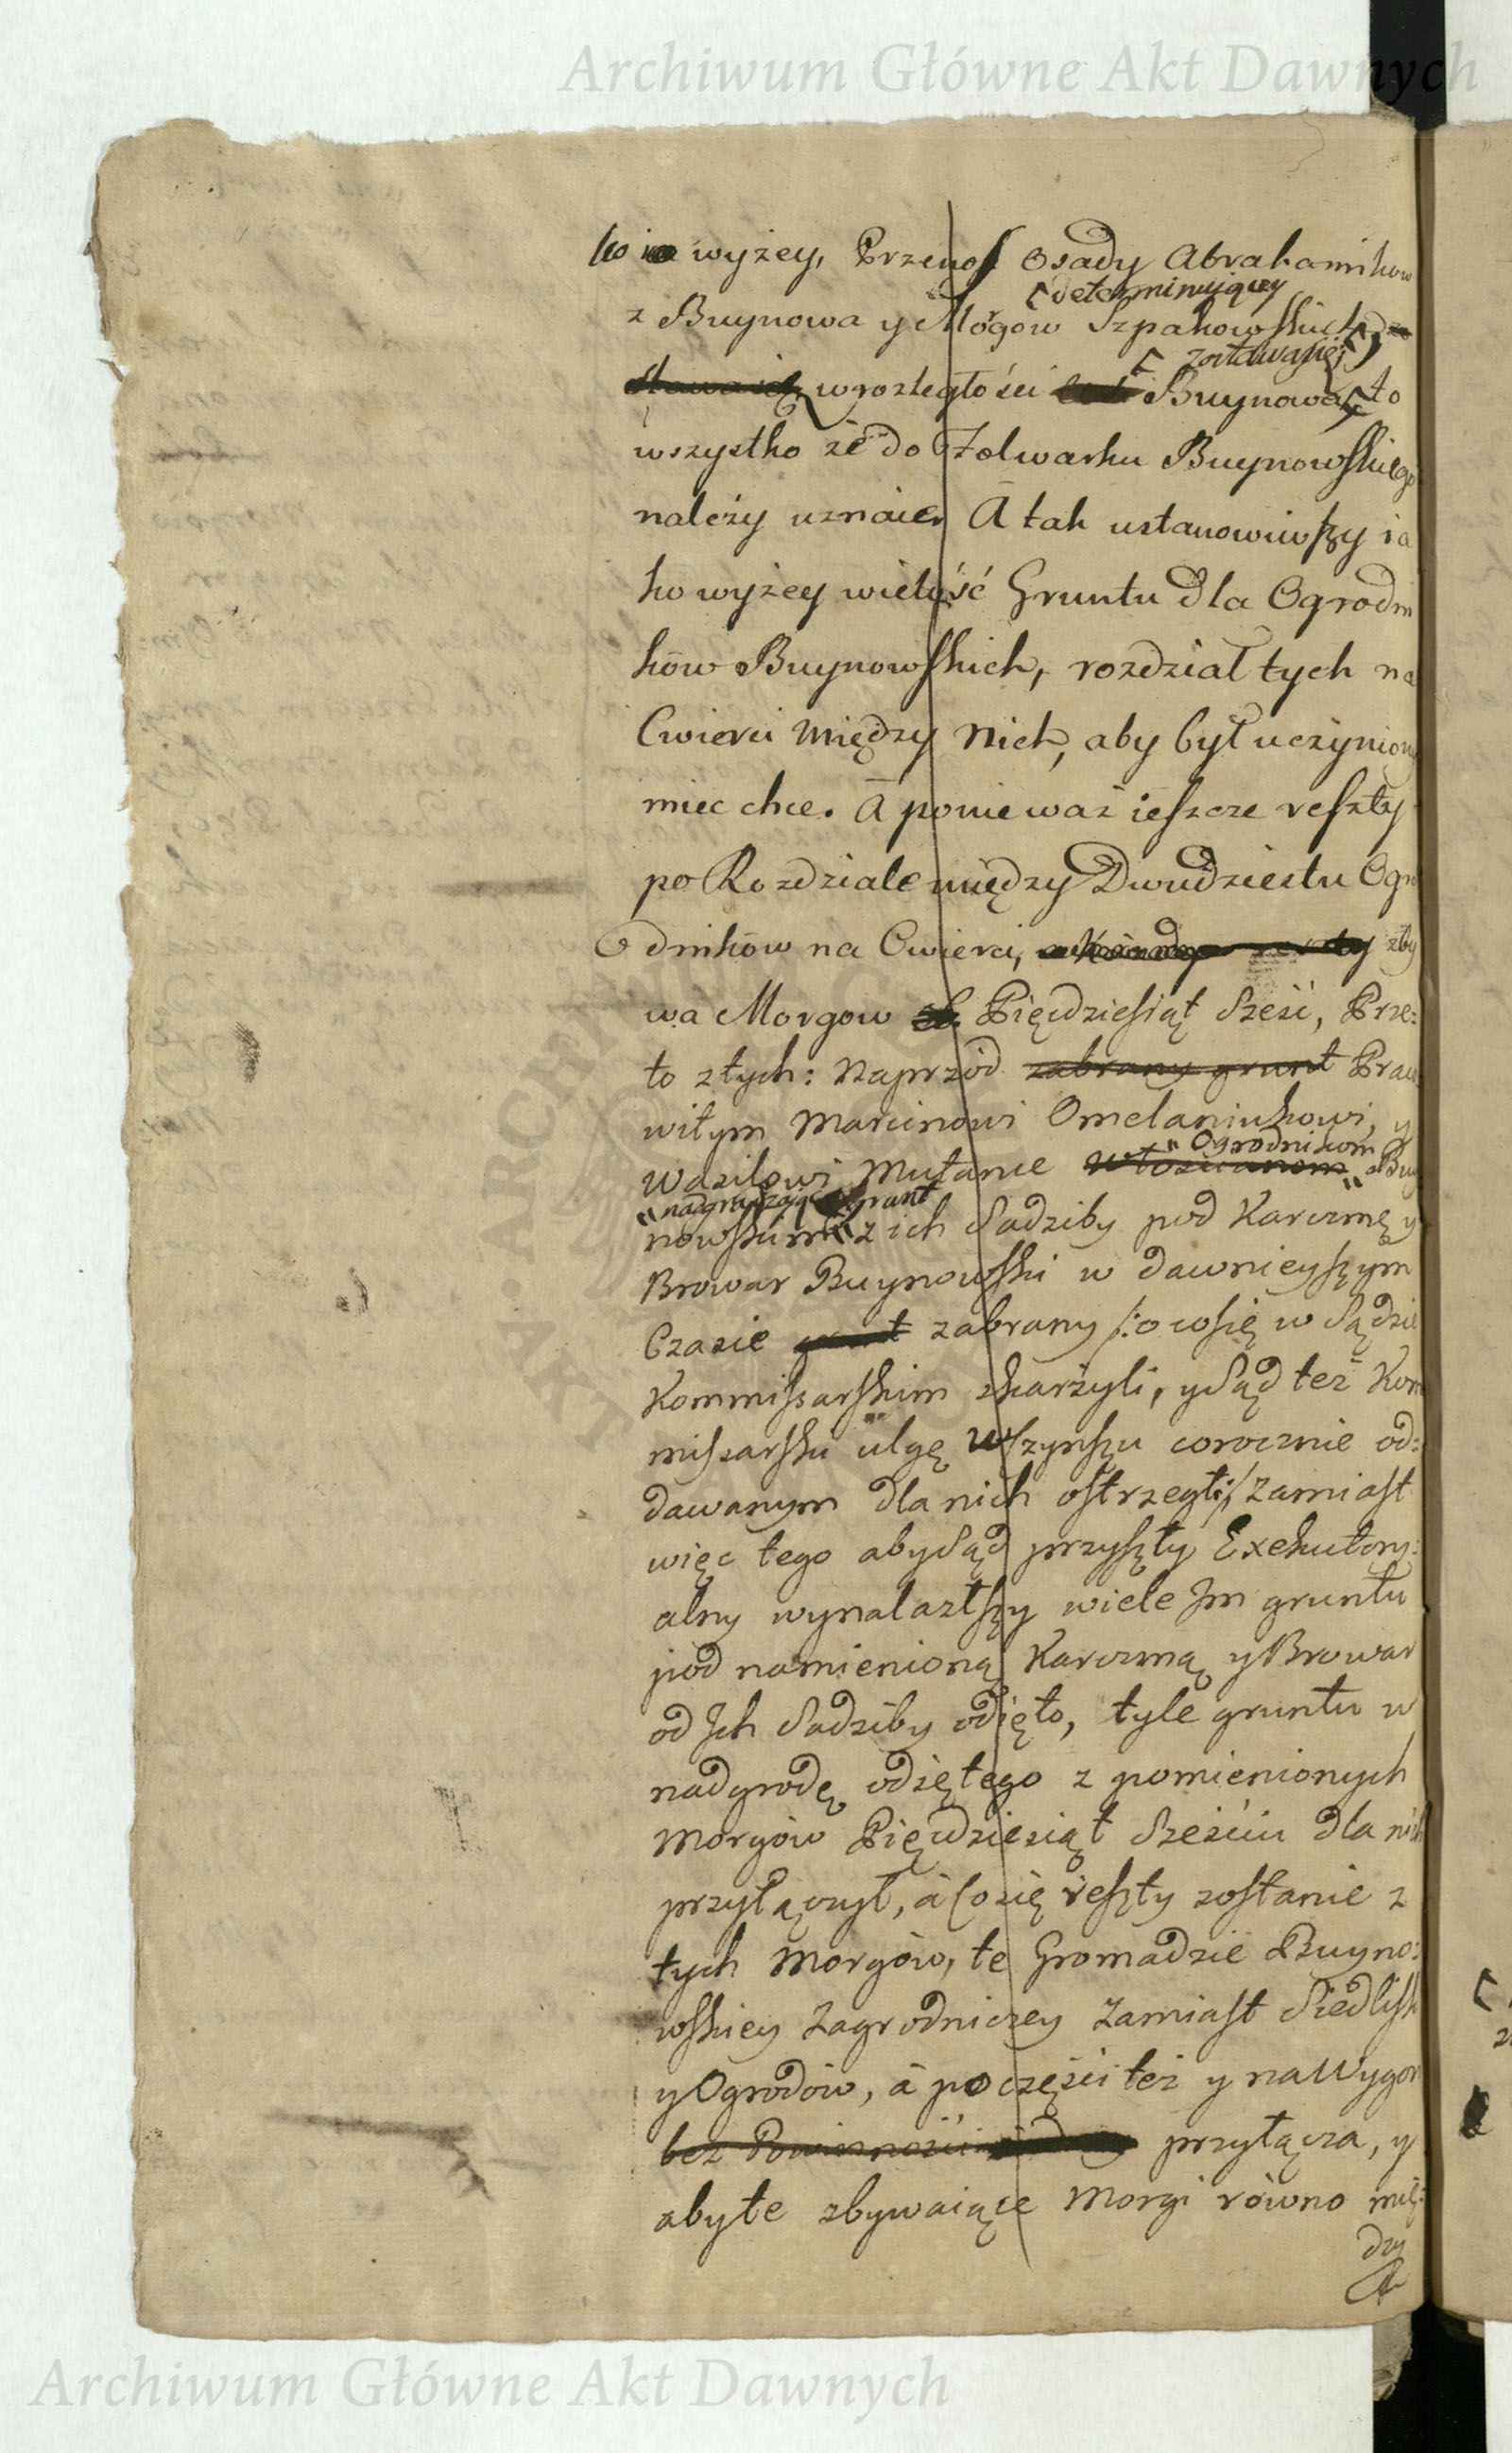 Archiwum Główne Akt Dawnych
ko wyżey, Przenos Osady Abrahamikow
determinuiący
z Buynowa y Mogow Szpakowskich
zostawaiące
w rozległości Buynowa, to
wszystko że do Folwarku Buynowskiego
należy uznaie. A tak ustanowiwszy ia
ko wyżey wielość Gruntu dla Ogrodni
ków Buynowskich, rozdział tych na
Cwierci między nich, aby był uczyniony
miec chce. A ponieważ ieszcze reszty
po Rozdziale między Dwudziestu Ogro
dników na Cwierci, zby
wa Morgow Pięćdziesiąt Sześć, Prze:
to z tych: Naprzód zabrany grunt Prac
witym Marcinowi Omelaniukowi, y
"Ogrodnikom
Wasilowi Mulance włościanom" Buy
"nadgradzaiąc grunt
nowskim z ich Sadziby pod Karczmę y
Browar Buynowski w dawnieyszym
Czasie grunt zabrany /:o co się w Sądzie
Kommissarskim skarżyli, y Sąd też Kom
missarski ulgę w Czynszu corocznie od:
dawanym dla nich ostrzegł:/ zamiast
więc tego aby Sąd przyszły Exekutory:
alny wynalazłszy wiele Im gruntu
pod namienioną Karczmą y Browar
od Ich Sadziby odięto, tyle gruntu w
nadgrodę odiętego z pomienionych
Morgów Pięćdziesiąt Sześciu dla nich
przyłączył, à co się reszty zostanie z
tych Morgów, te Gromadzie Buyno:
wskiey Zagrodniczey zamiast Siedlisk
y Ogrodów, à po części też y na Wygon
bez Powinności przyłącza, y
aby te zbywaiące Morgi równo mię:
dzy
Archiwum Główne Akt Dawnych